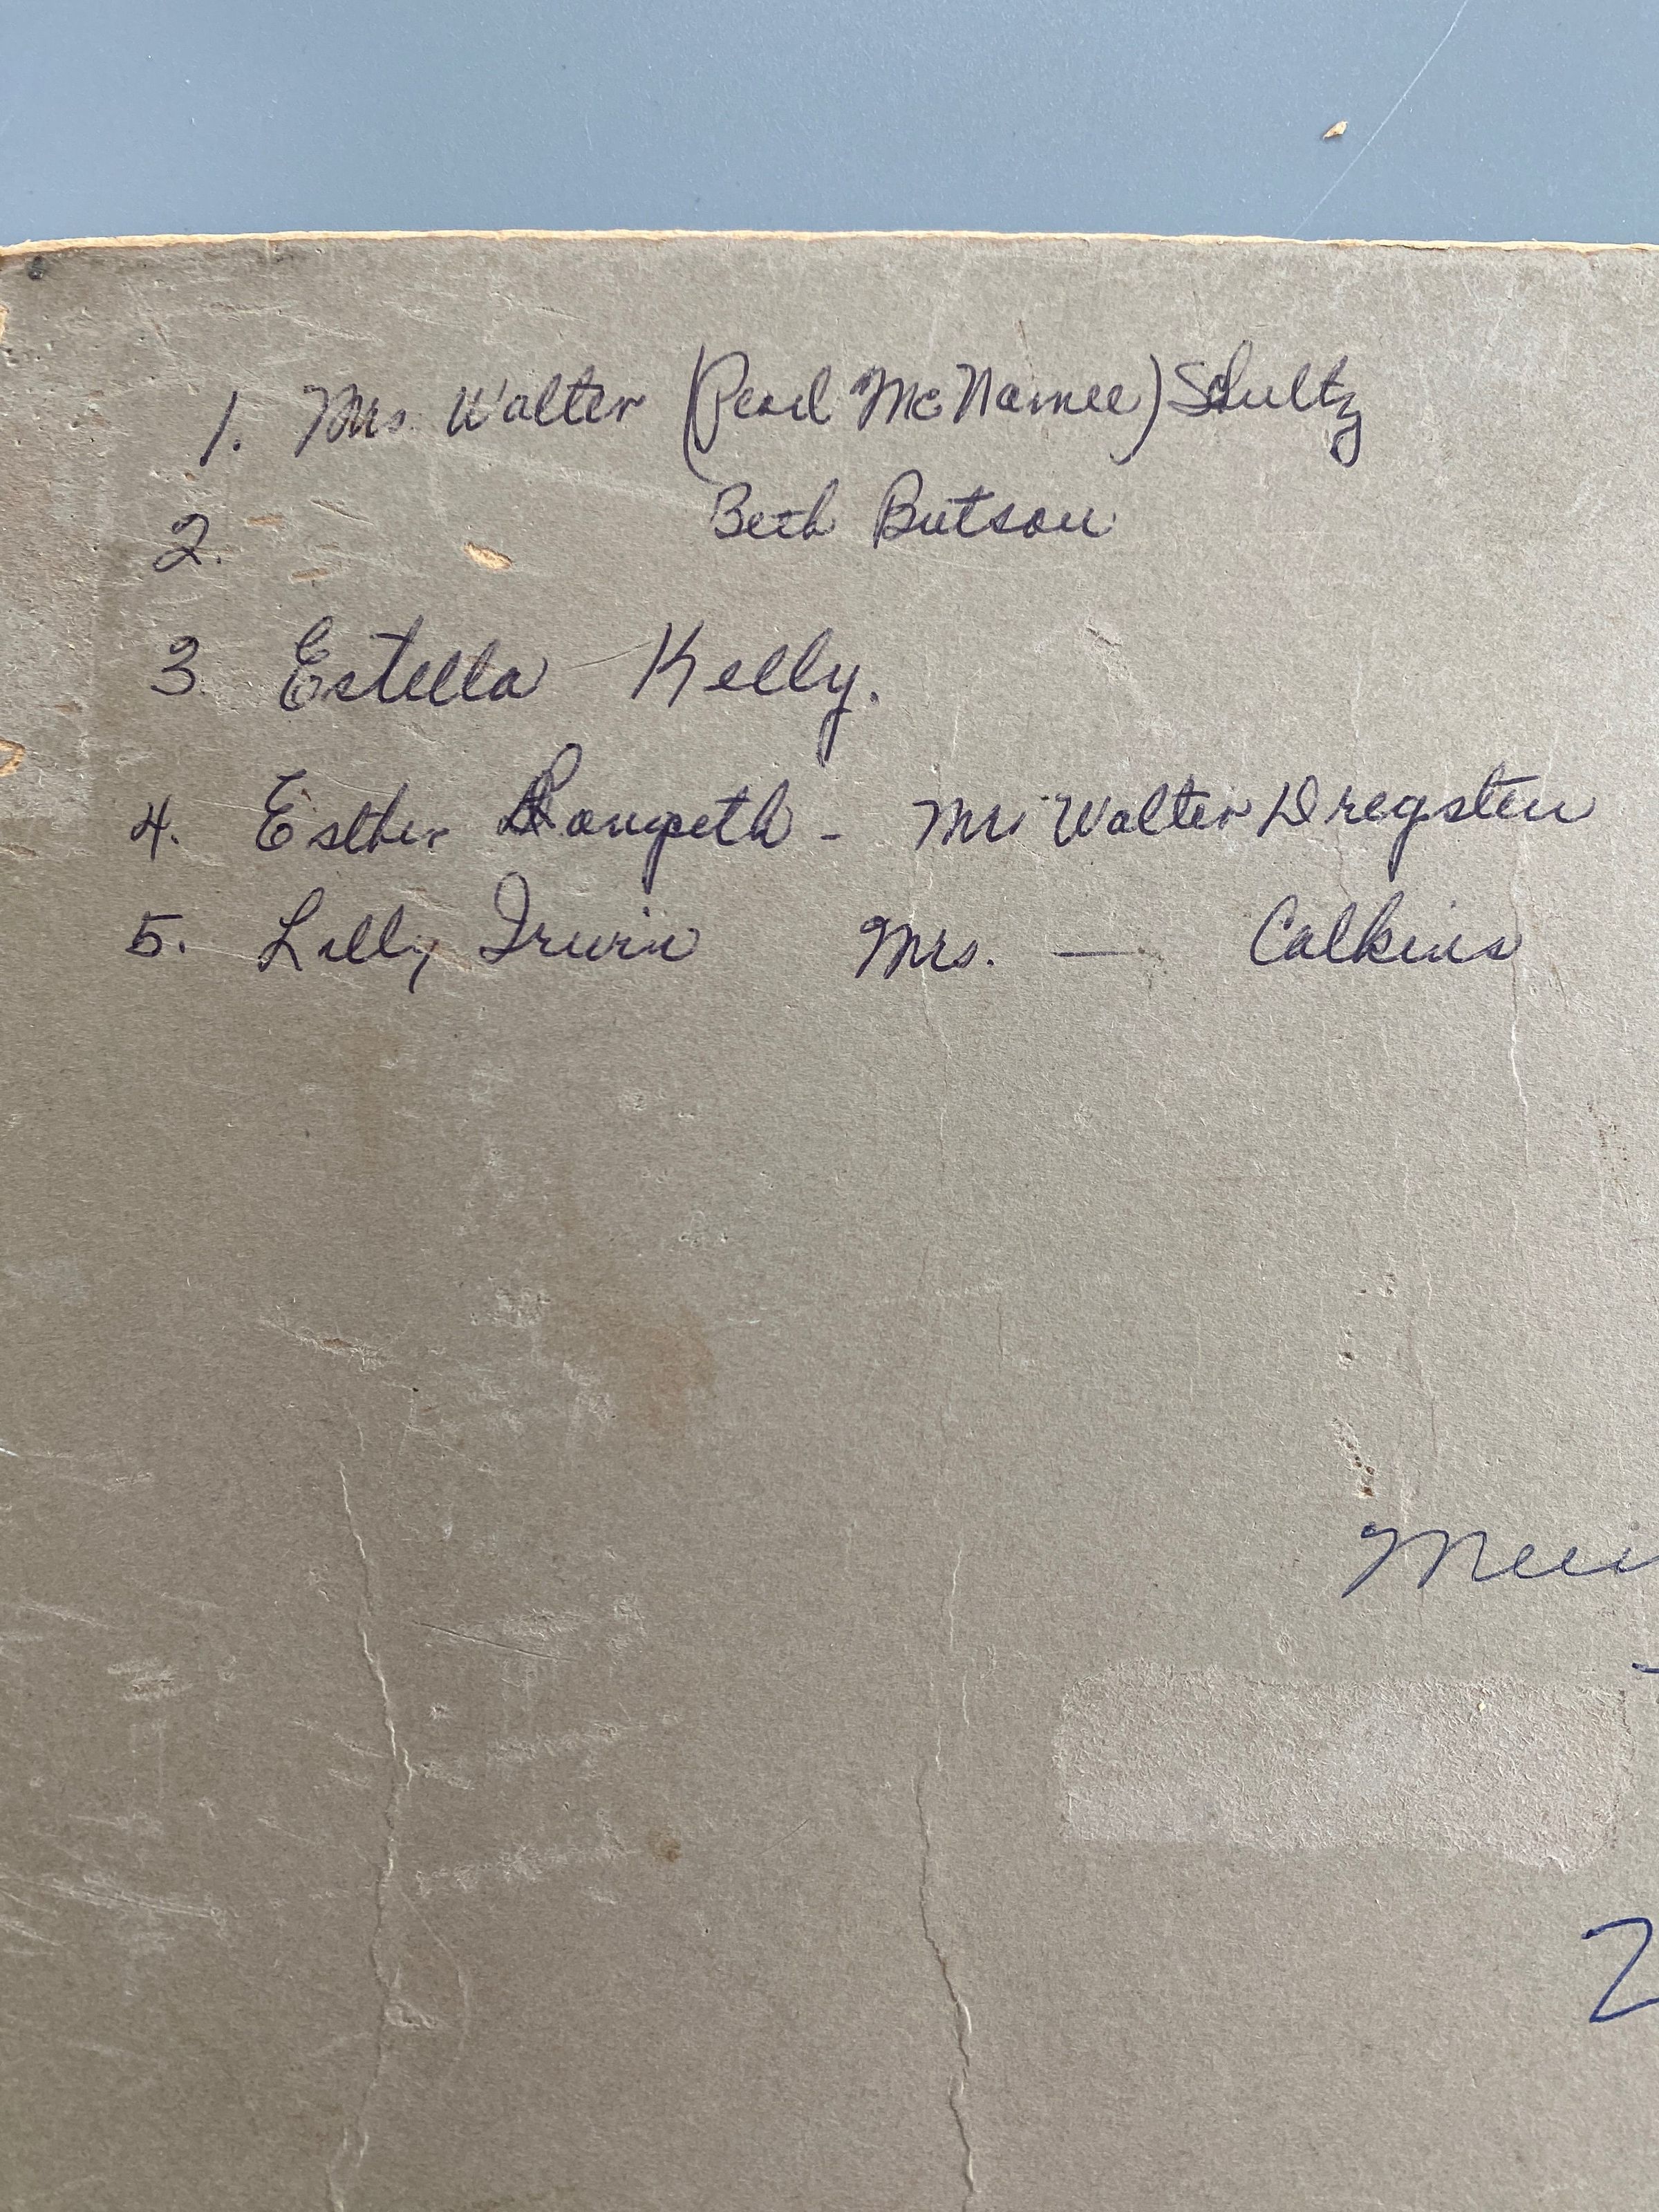 1. Mrs. Walter (Pearl McNamee) Schultz
2. Beth Butson
3. Estella Kelly.
4. Esther - Mrs Walter Dregsten
5. Lilly Irwin Mrs. — Calkins
2